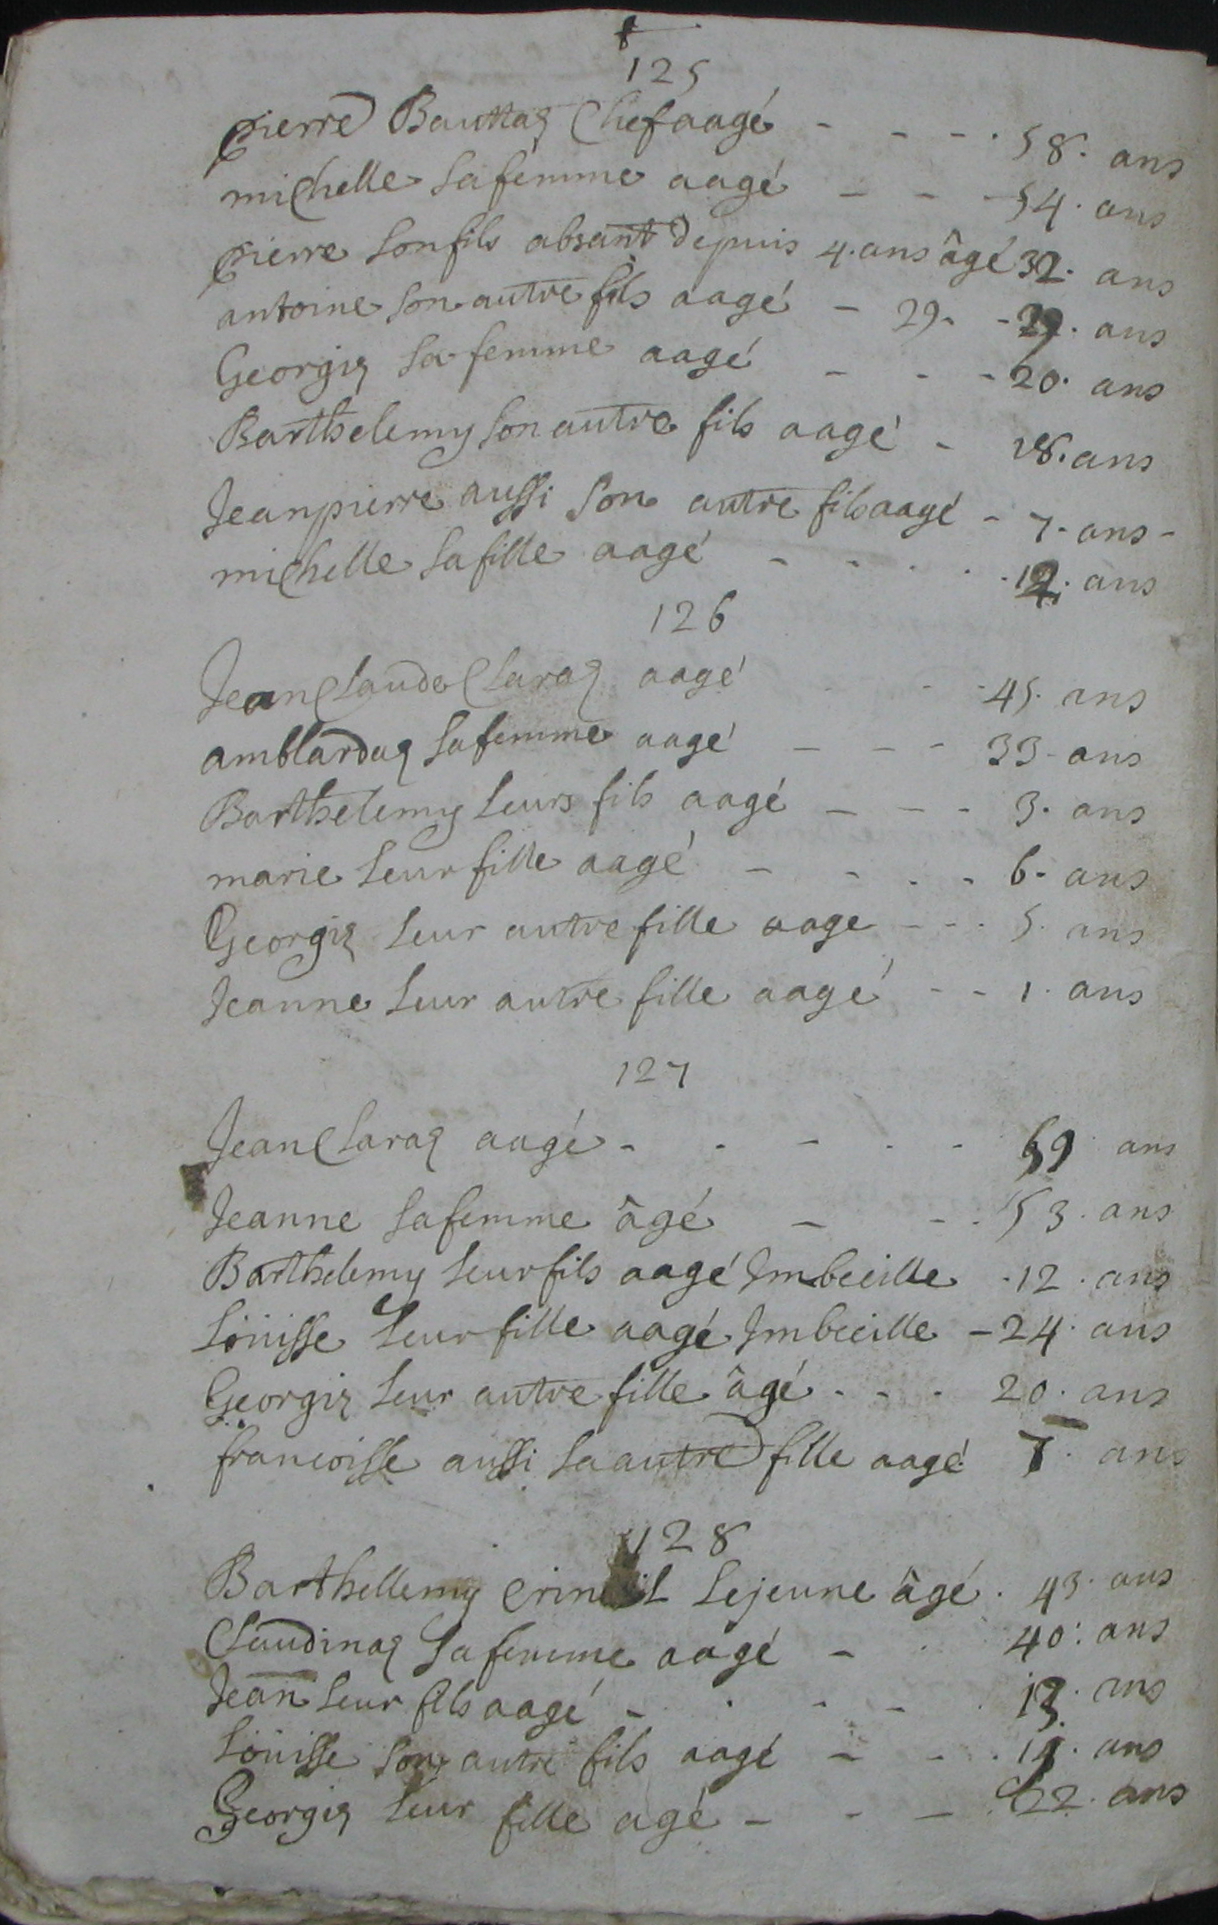 125
pierre Bauttaz Chef aagé - - - . 58. ans
michelle sa femme aagé - - - 54. ans
pierre son fils absant depuis 4. ans âgé 32. ans
antoine son autre fils aagé - 29. - 29. ans
Georgiz sa femme aagé - - - 20. ans
Barthelemy son autre fils aagé - 18. ans
Jeanpierre aussi son autre fils aagé - 7. ans -
michelle sa fille aagé - - . . . ans
126
Jean Claude Claraz aagé - - 45. ans
amblardaz sa femme aagé - - - 33 - ans
Barthelemy leurs fils aagé - - - 3. ans
marie leur fille aagé - - . . 6. ans
Georgiz leur autre fille aage - - . 5. ans
Jeanne leur autre fille aagé - - 1. ans
127
Jean Claraz aagé - - - - - 59 ans
Jeanne sa femme âgé - - . 53. ans
Barthelemy leur fils aagé Imbecille . 12. ans
Loüisse leur fille aagé Imbecille - 24. ans
Georgiz leur autre fille âgé . - . 20. ans
francoisse aussi sa autre fille aagé 7. ans
128
Barthellemy Lejeune âgé . 43. ans
Claudinaz sa femme aagé - . 40. ans
Jean leur fils aagé - . - - 13. ans
Loüisse son autre fils aagé - - . ans
Georgiz leur fille agé - - - . 22. ans